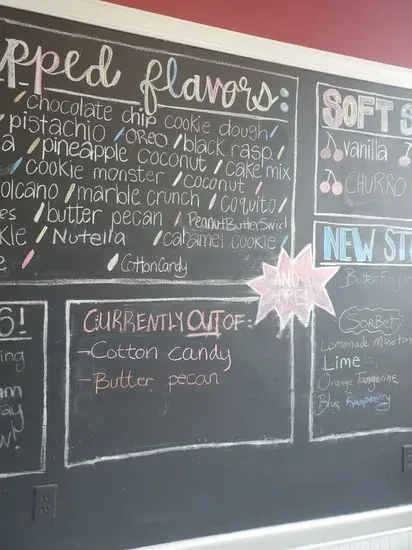 pped flavors:
chocolate chip cookie dough/
pistachio / OREO / black rasp. /
a / pineapple coconut / cake mix
/ cookie monster / coconut /
olcano / marble crunch / coquito /
es / butter pecan / Peanut Butter Swirl
kle / Nutella / caramel cookie /
e / / Cotton Candy
AND MORE!
SOFT S
vanilla
CHURRO
NEW ST
Butter Finge
SORBET
Lemonade
Lime
Orange Tangerine
Blue Raspberry
S!
ing
am
ay
w!
CURRENTLY OUT OF:
- Cotton candy
- Butter pecan